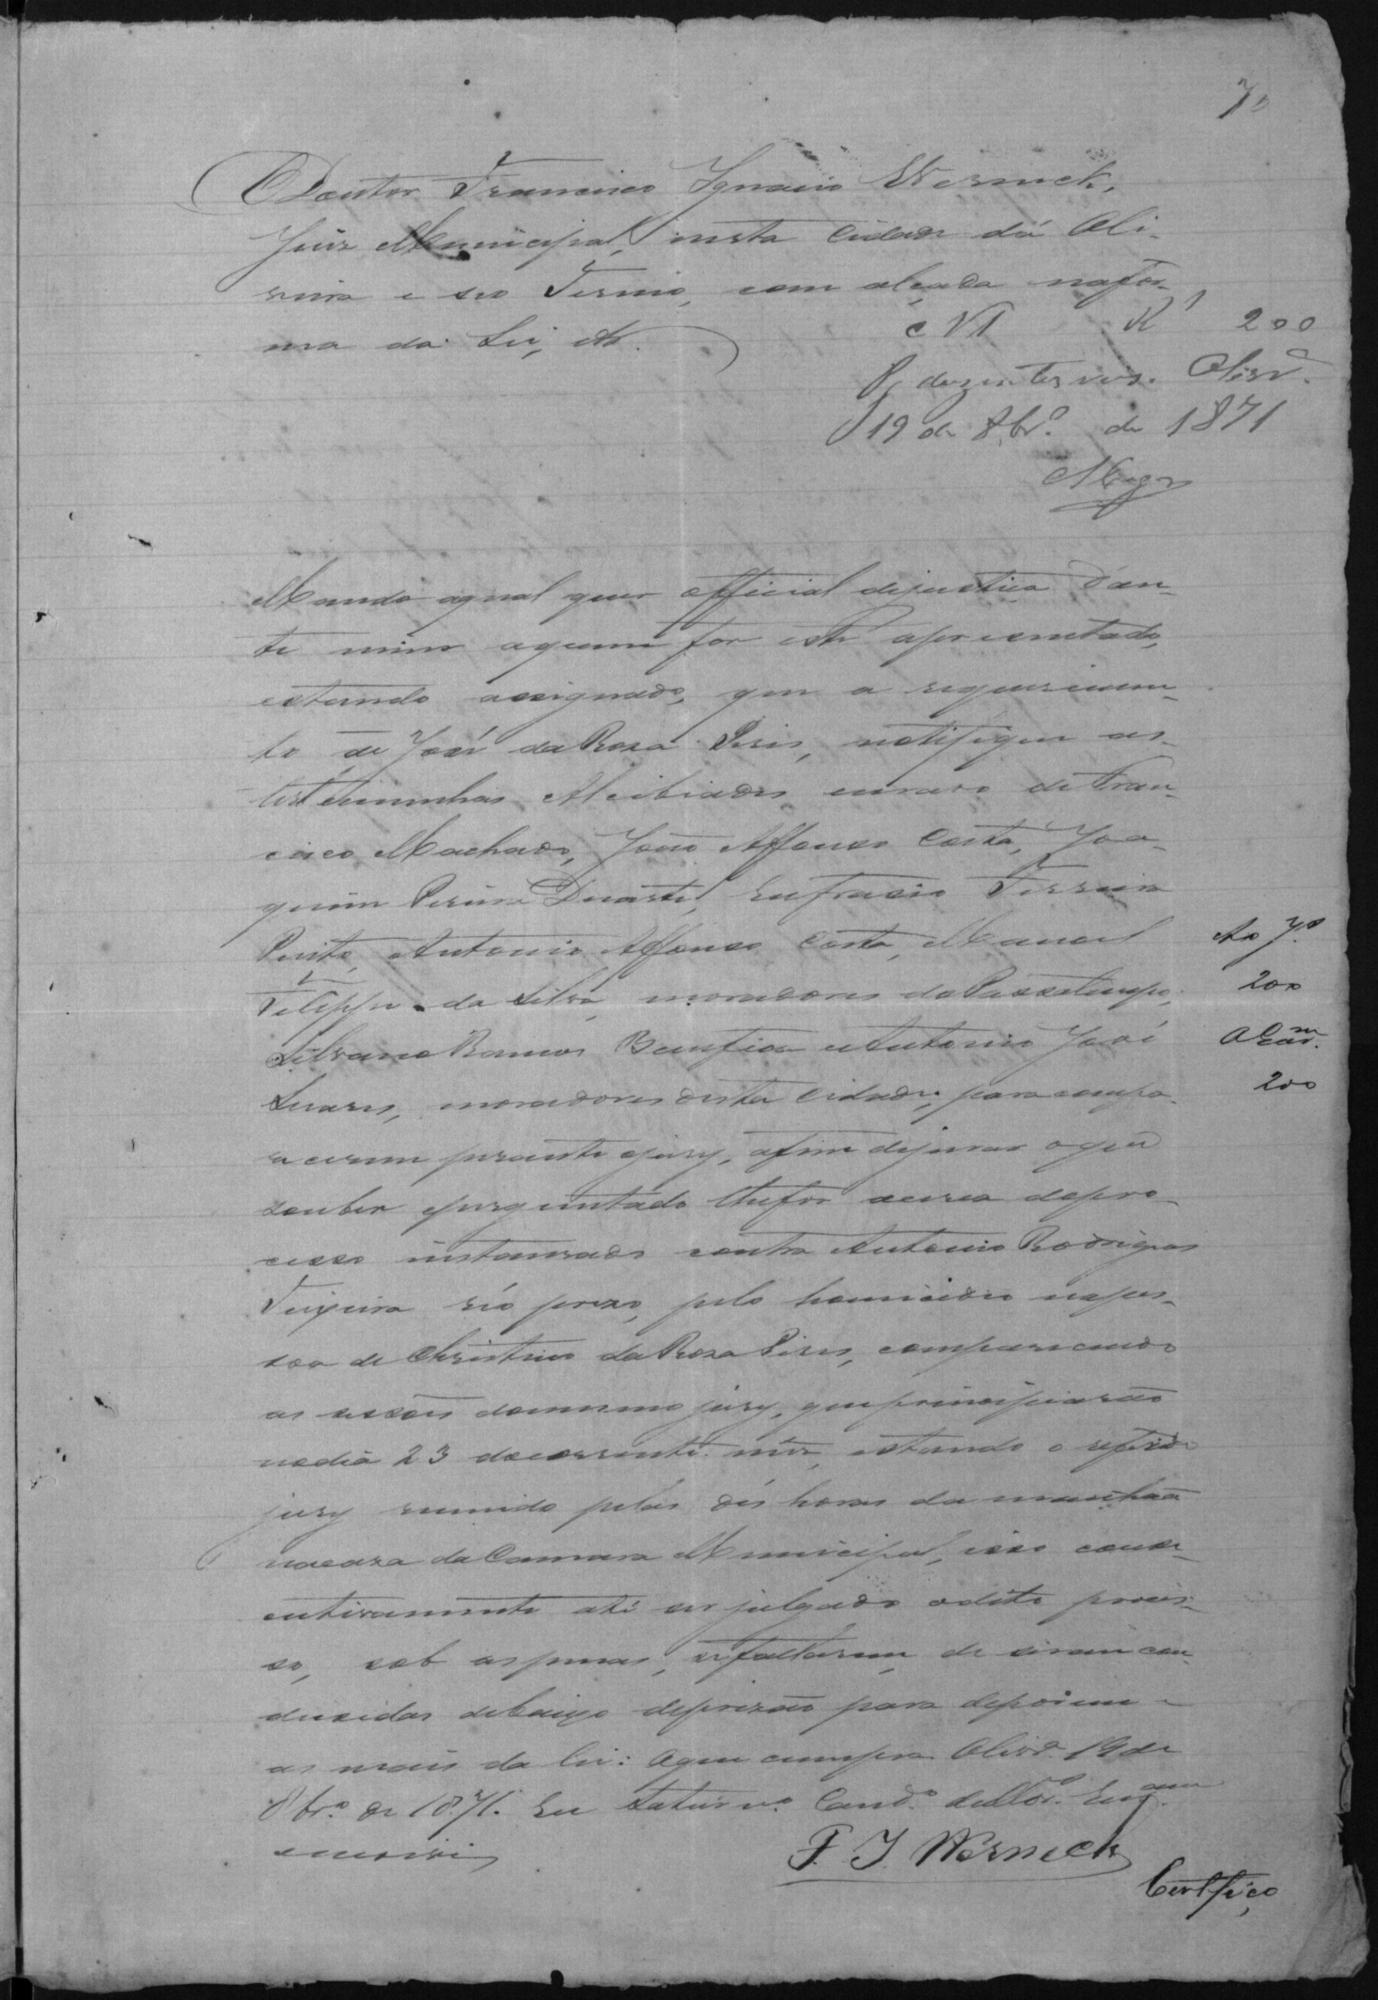 70
O Doutor Francisco Ignacio Werneck,
Juiz Municipal, nesta Cidade da Oli-
veira e seo Termo, com alçada nafor-
ma da Lei, etc.
N 1 R 200
P. duzentos reis. Olivrª.
19 de 8brº. de 1871
Mando aqual quer official dejustiça dian-
te mim aquem for este apresentado,
estando assignado, que a requerimen-
to de José da Roza Pires, notifique as
testemunhas Alcibiades escravo de Fran-
cisco Machado, João Affonso Costa, Joa-
quim Pereira Duarte, Eufrasio Ferreira
Pinto, Antonio Affonso Costa, Manoel
Felippe da Silva, moradores do Passatempo;
Silverio Ramos Bomfim e Antonio José
Soares, moradores desta Cidade; para compa-
recerem perante ojury, afim dejurar oque
souber eperguntado lhefor acerca dopro-
cesso instaurado contra Antonio Rodrigues
Teixeira réo prezo, pelo homicidio napes-
soa de Christino da Roza Pires, comparecendo
as sessões domesmo jury, queprincipiarão
nodia 23 docorrente mez, estando o referido
jury reunido pelas dés horas da manhaã
nacaza da Camara Municipal, isso conse-
cutivamente até ser julgado odito proces-
so, sob aspenas, sefaltarem, de serem con-
dusidas debaixo deprizão para deporem e
as mais da lei: Oque cumpra. Olivrª. 19 de
8brº. de 1871. Eu Saturnº. Candº.
escrivi
F. I. Werneck
Certifico
Ao Jº
200
200